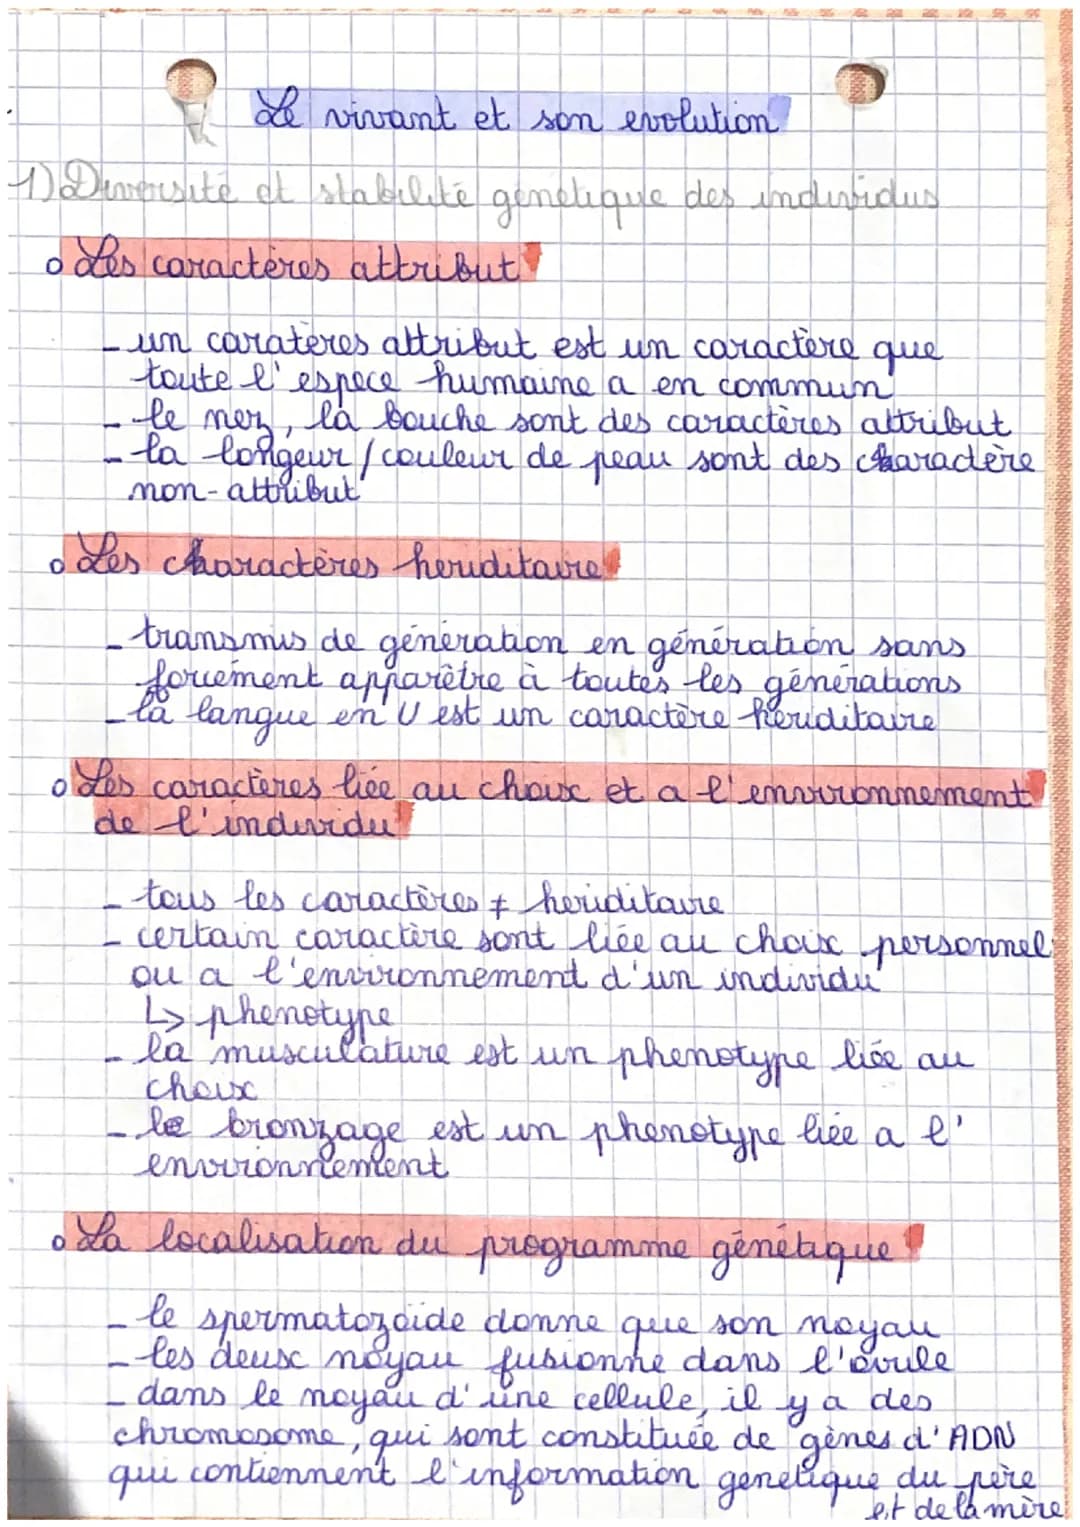 Le vivant et son evolution
1) Diversité et stabilité génetique des individus
o Les caractères attribut
- un caratères attribut est un caractère que
toute l'espece humaine a en commun
- le nez, la bouche sont des caractères attribut
- la longeur / couleur de peau sont des charactère
non-attribut
o Les charactères heriditaire
- transmis de génération en génération sans
forcément apparêtre à toutes les générations
- la langue en U est un caractère hériditaire
o Les caractères liée au choix et a l'environnement
de l'individu
- tous les caractères ≠ heriditaire
- certain caractère sont liée au choix personnel
ou a l'environnement d'un individu
↳ phenotype
- la musculature est un phenotype liée au
choix
- le bronzage est un phenotype liée a l'
environnement
o La localisation du programme génétique
- le spermatozoïde donne que son noyau
- les deux noyau fusionne dans l'ovule
- dans le noyau d'une cellule, il y a des
chromosome, qui sont constituée de gènes d'ADN
qui contiennent l'information genetique du père
et de la mère